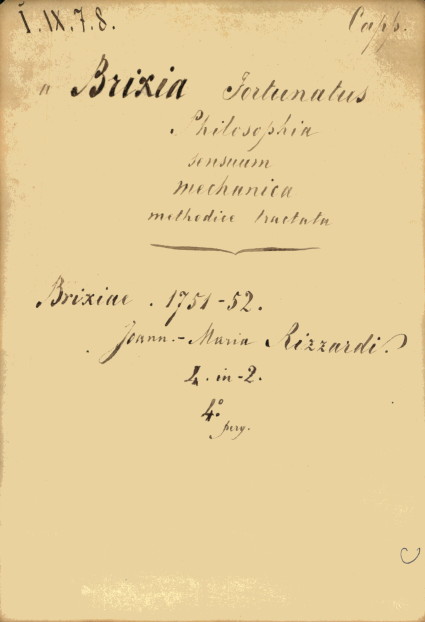 I. IX. 7. 8. Capp.
a Brixia Fortunatus
Philosophia
sensuum
mechanica
methodice tractata
Brixiae. 1751-52.
Joann.-Maria Rizzardi.
in-2.
4º